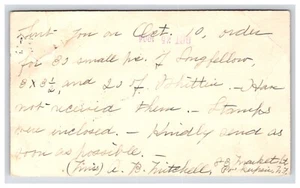 Sent you on Oct. 10, order
for 25 small pc. of Longfellow,
5 x 3½, and 25 of Whittier. – Have
not received them. – Stamps
were inclosed. – Kindly send as
soon as possible. –
(Miss) A. B. Mitchell, 
Market St.